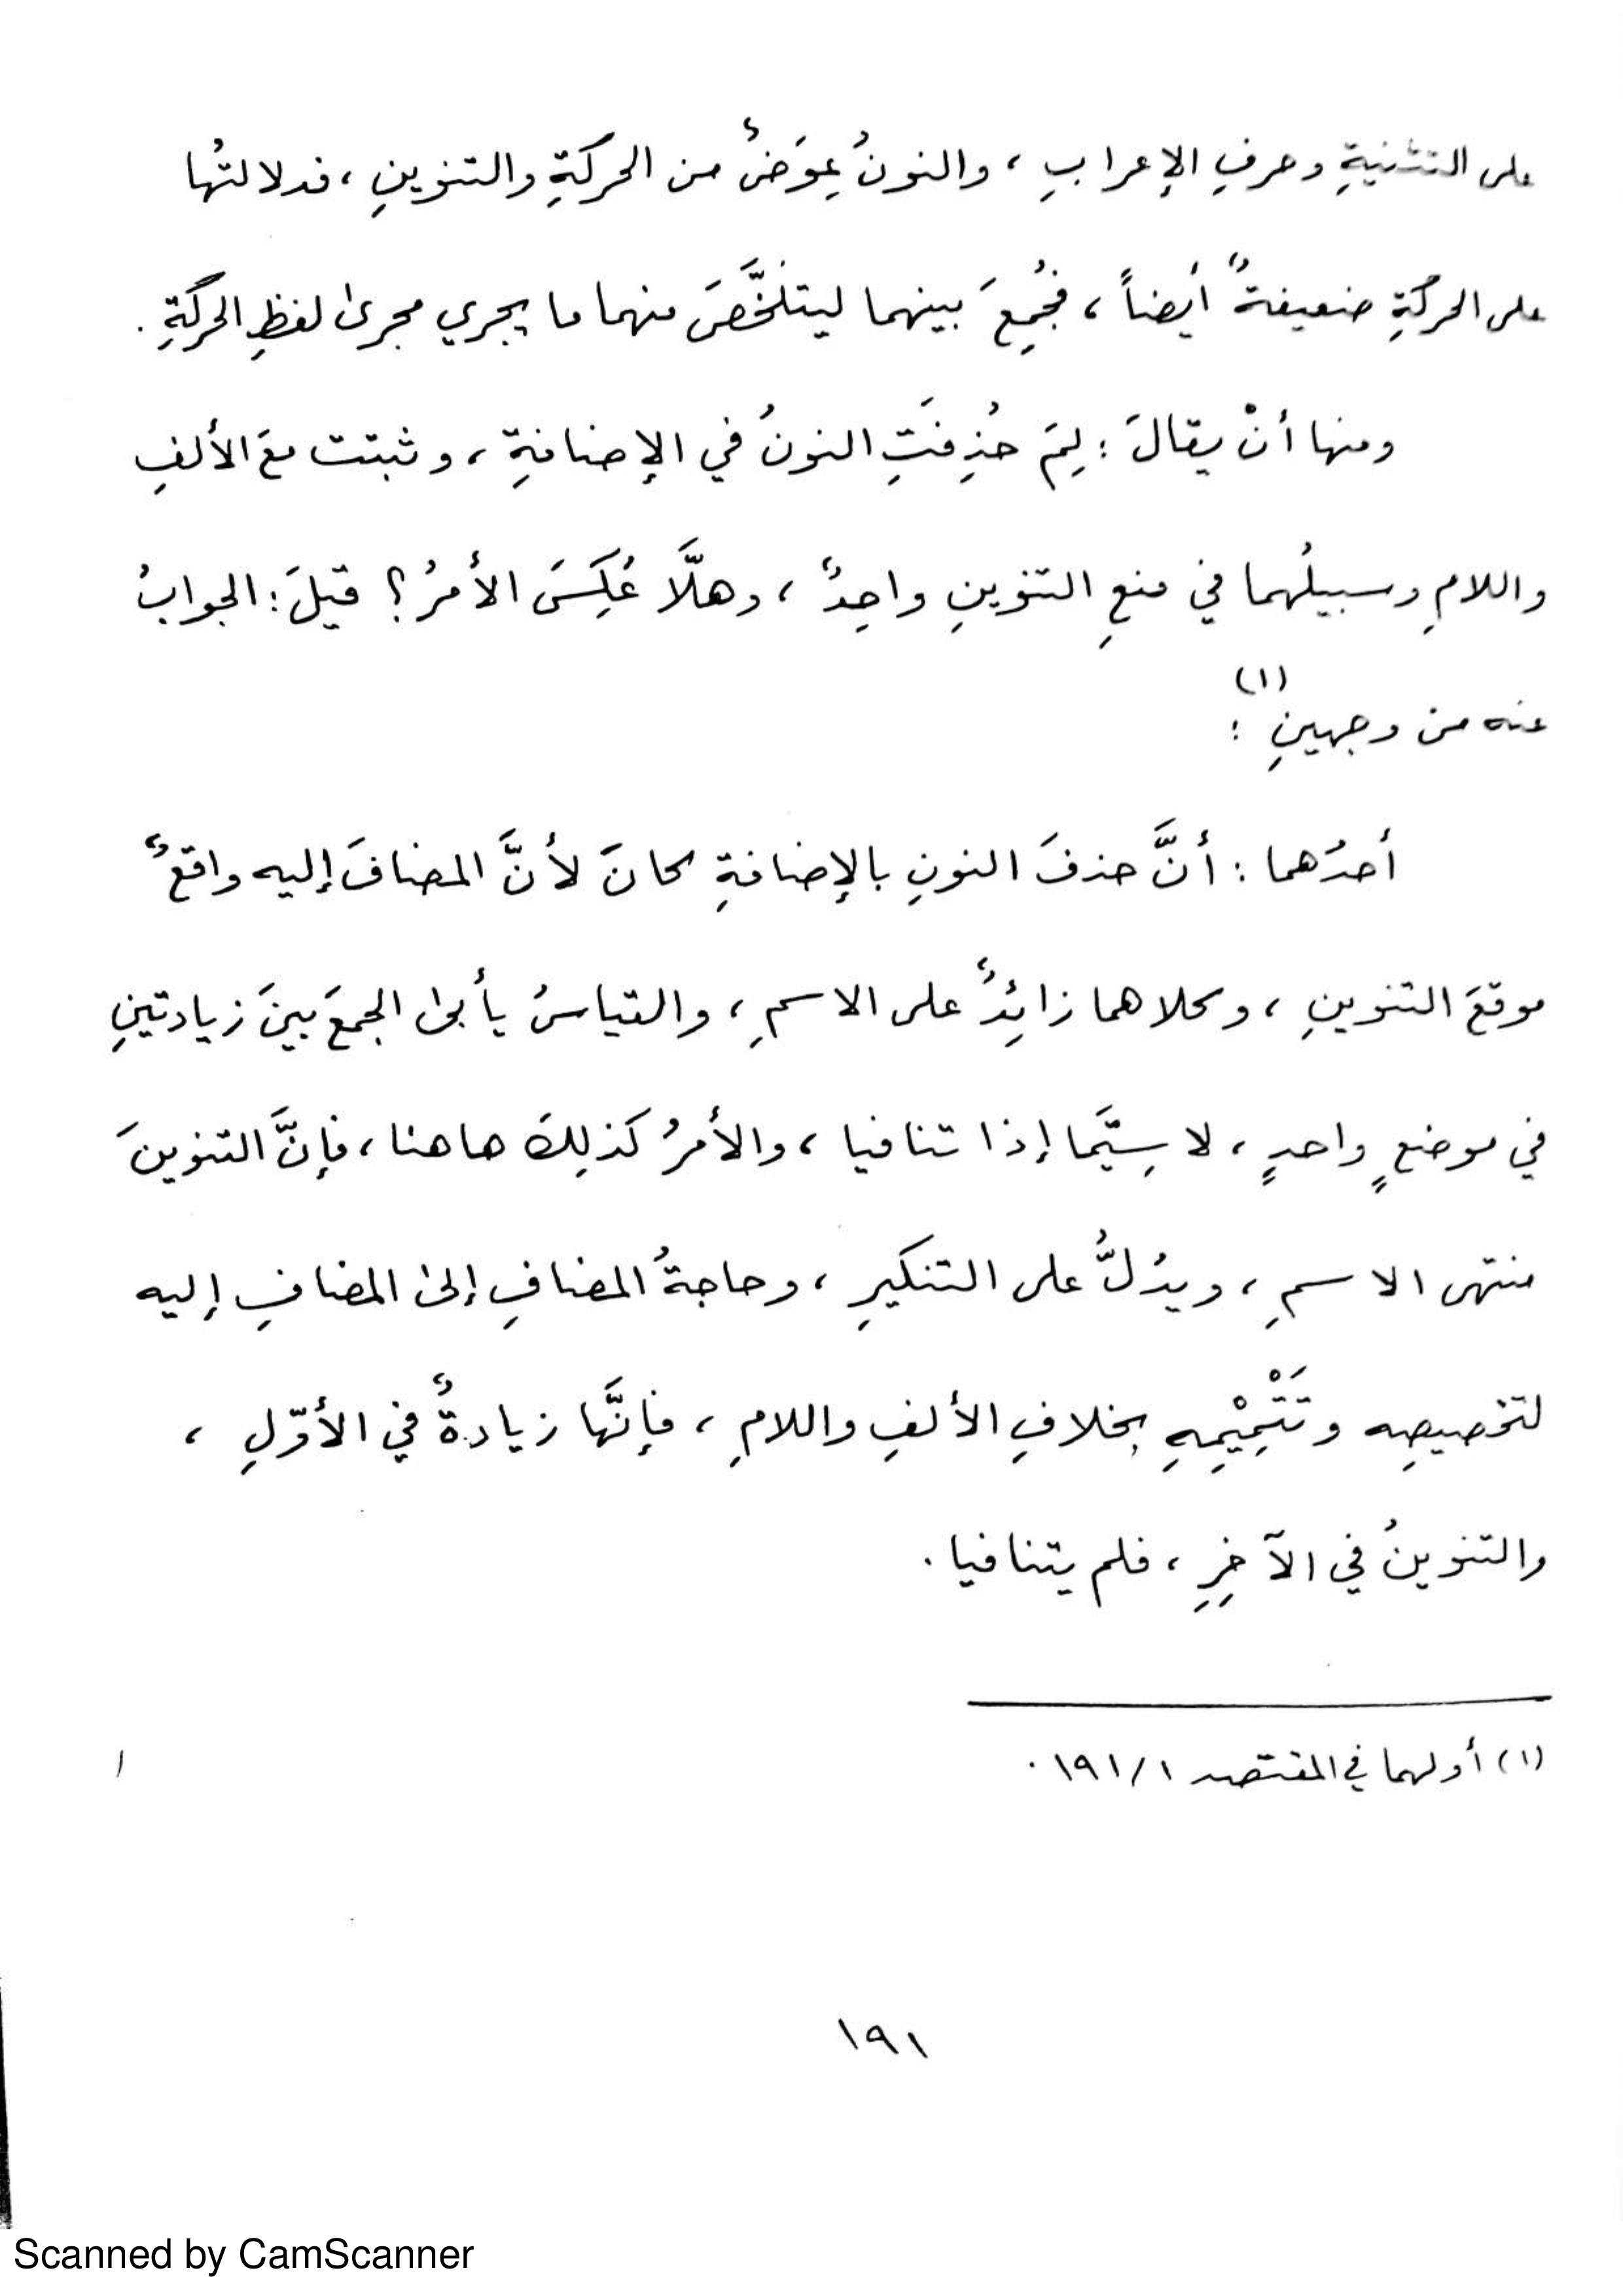 على التثنيةِ وحرفِ الإعرابِ ، والنونُ عِوَضٌ من الحركةِ والتنوينِ ، فدلالتُها
على الحركةِ ضعيفةٌ أيضاً ، فجُمِعَ بينهما ليتلخَّصَ منهما ما يجري مجرىٰ لفظِ الحركةِ .
ومنها أنْ يقالَ : لِمَ حُذِفَتِ النونُ في الإضافةِ ، وثبتت معَ الألفِ
واللامِ وسبيلُهما في منعِ التنوينِ واحِدٌ ، وهلَّا عُكِسَ الأمرُ ؟ قيلَ : الجوابُ
عنه من وجهينِ (١) :
أحدُهما : أنَّ حذفَ النونِ بالإضافةِ كانَ لأنَّ المضافَ إليه واقعٌ
موقعَ التنوينِ ، وكلاهما زائِدٌ على الاسمِ ، والقياسُ يأبىٰ الجمعَ بينَ زيادتينِ
في موضعٍ واحدٍ ، لا سِيَّما إذا تنافيا ، والأمرُ كذلِكَ هاهنا ، فإنَّ التنوينَ
منتهى الاسمِ ، ويدُلُّ على التنكيرِ ، وحاجةُ المضافِ إلىٰ المضافِ إليه
لتخصيصِه وتَتْمِيْمِهِ بخلافِ الألفِ واللامِ ، فإنَّها زيادةٌ في الأوّلِ ،
والتنوينُ في الآخِرِ ، فلم يتنافيا .
(١) أولهما في المقتصد ١٩١/١ .
١٩١
Scanned by CamScanner